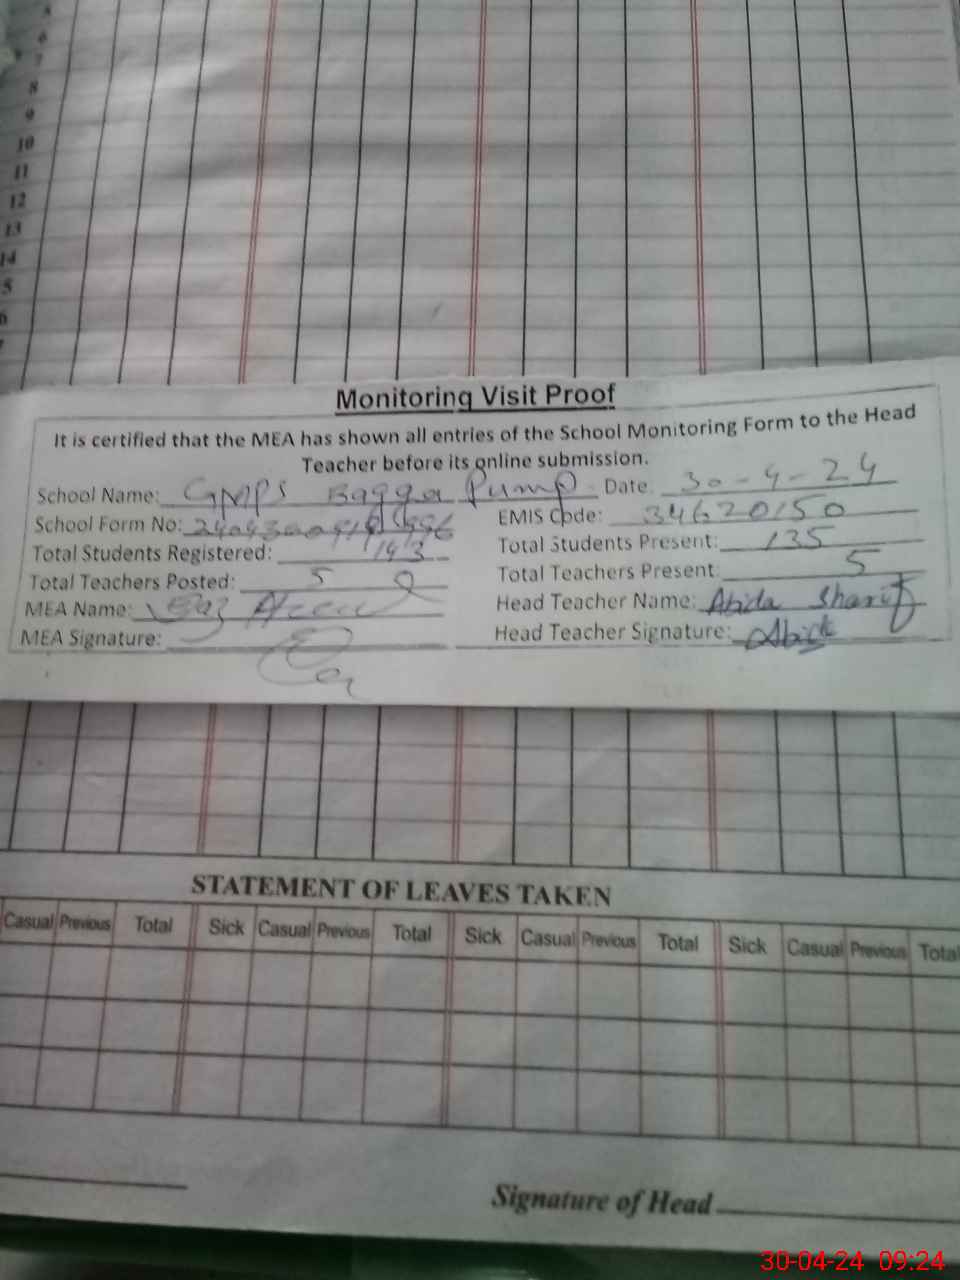 6
7
8
9
10
11
12
13
14
5
Monitoring Visit Proof
It is certified that the MEA has shown all entries of the School Monitoring Form to the Head
Teacher before its online submission.
School Name: GMPS Bagga Pump Date 30-4-24
School Form No: EMIS Code: 34620150
Total Students Registered: 143 Total Students Present: 135
Total Teachers Posted: 5 Total Teachers Present: 5
MEA Name: Head Teacher Name: Abida Sharif
MEA Signature: Head Teacher Signature: Abida
STATEMENT OF LEAVES TAKEN
Casual Previous Total Sick Casual Previous Total Sick Casual Previous Total Sick Casual Previous Total
Signature of Head
30-04-24 09:24